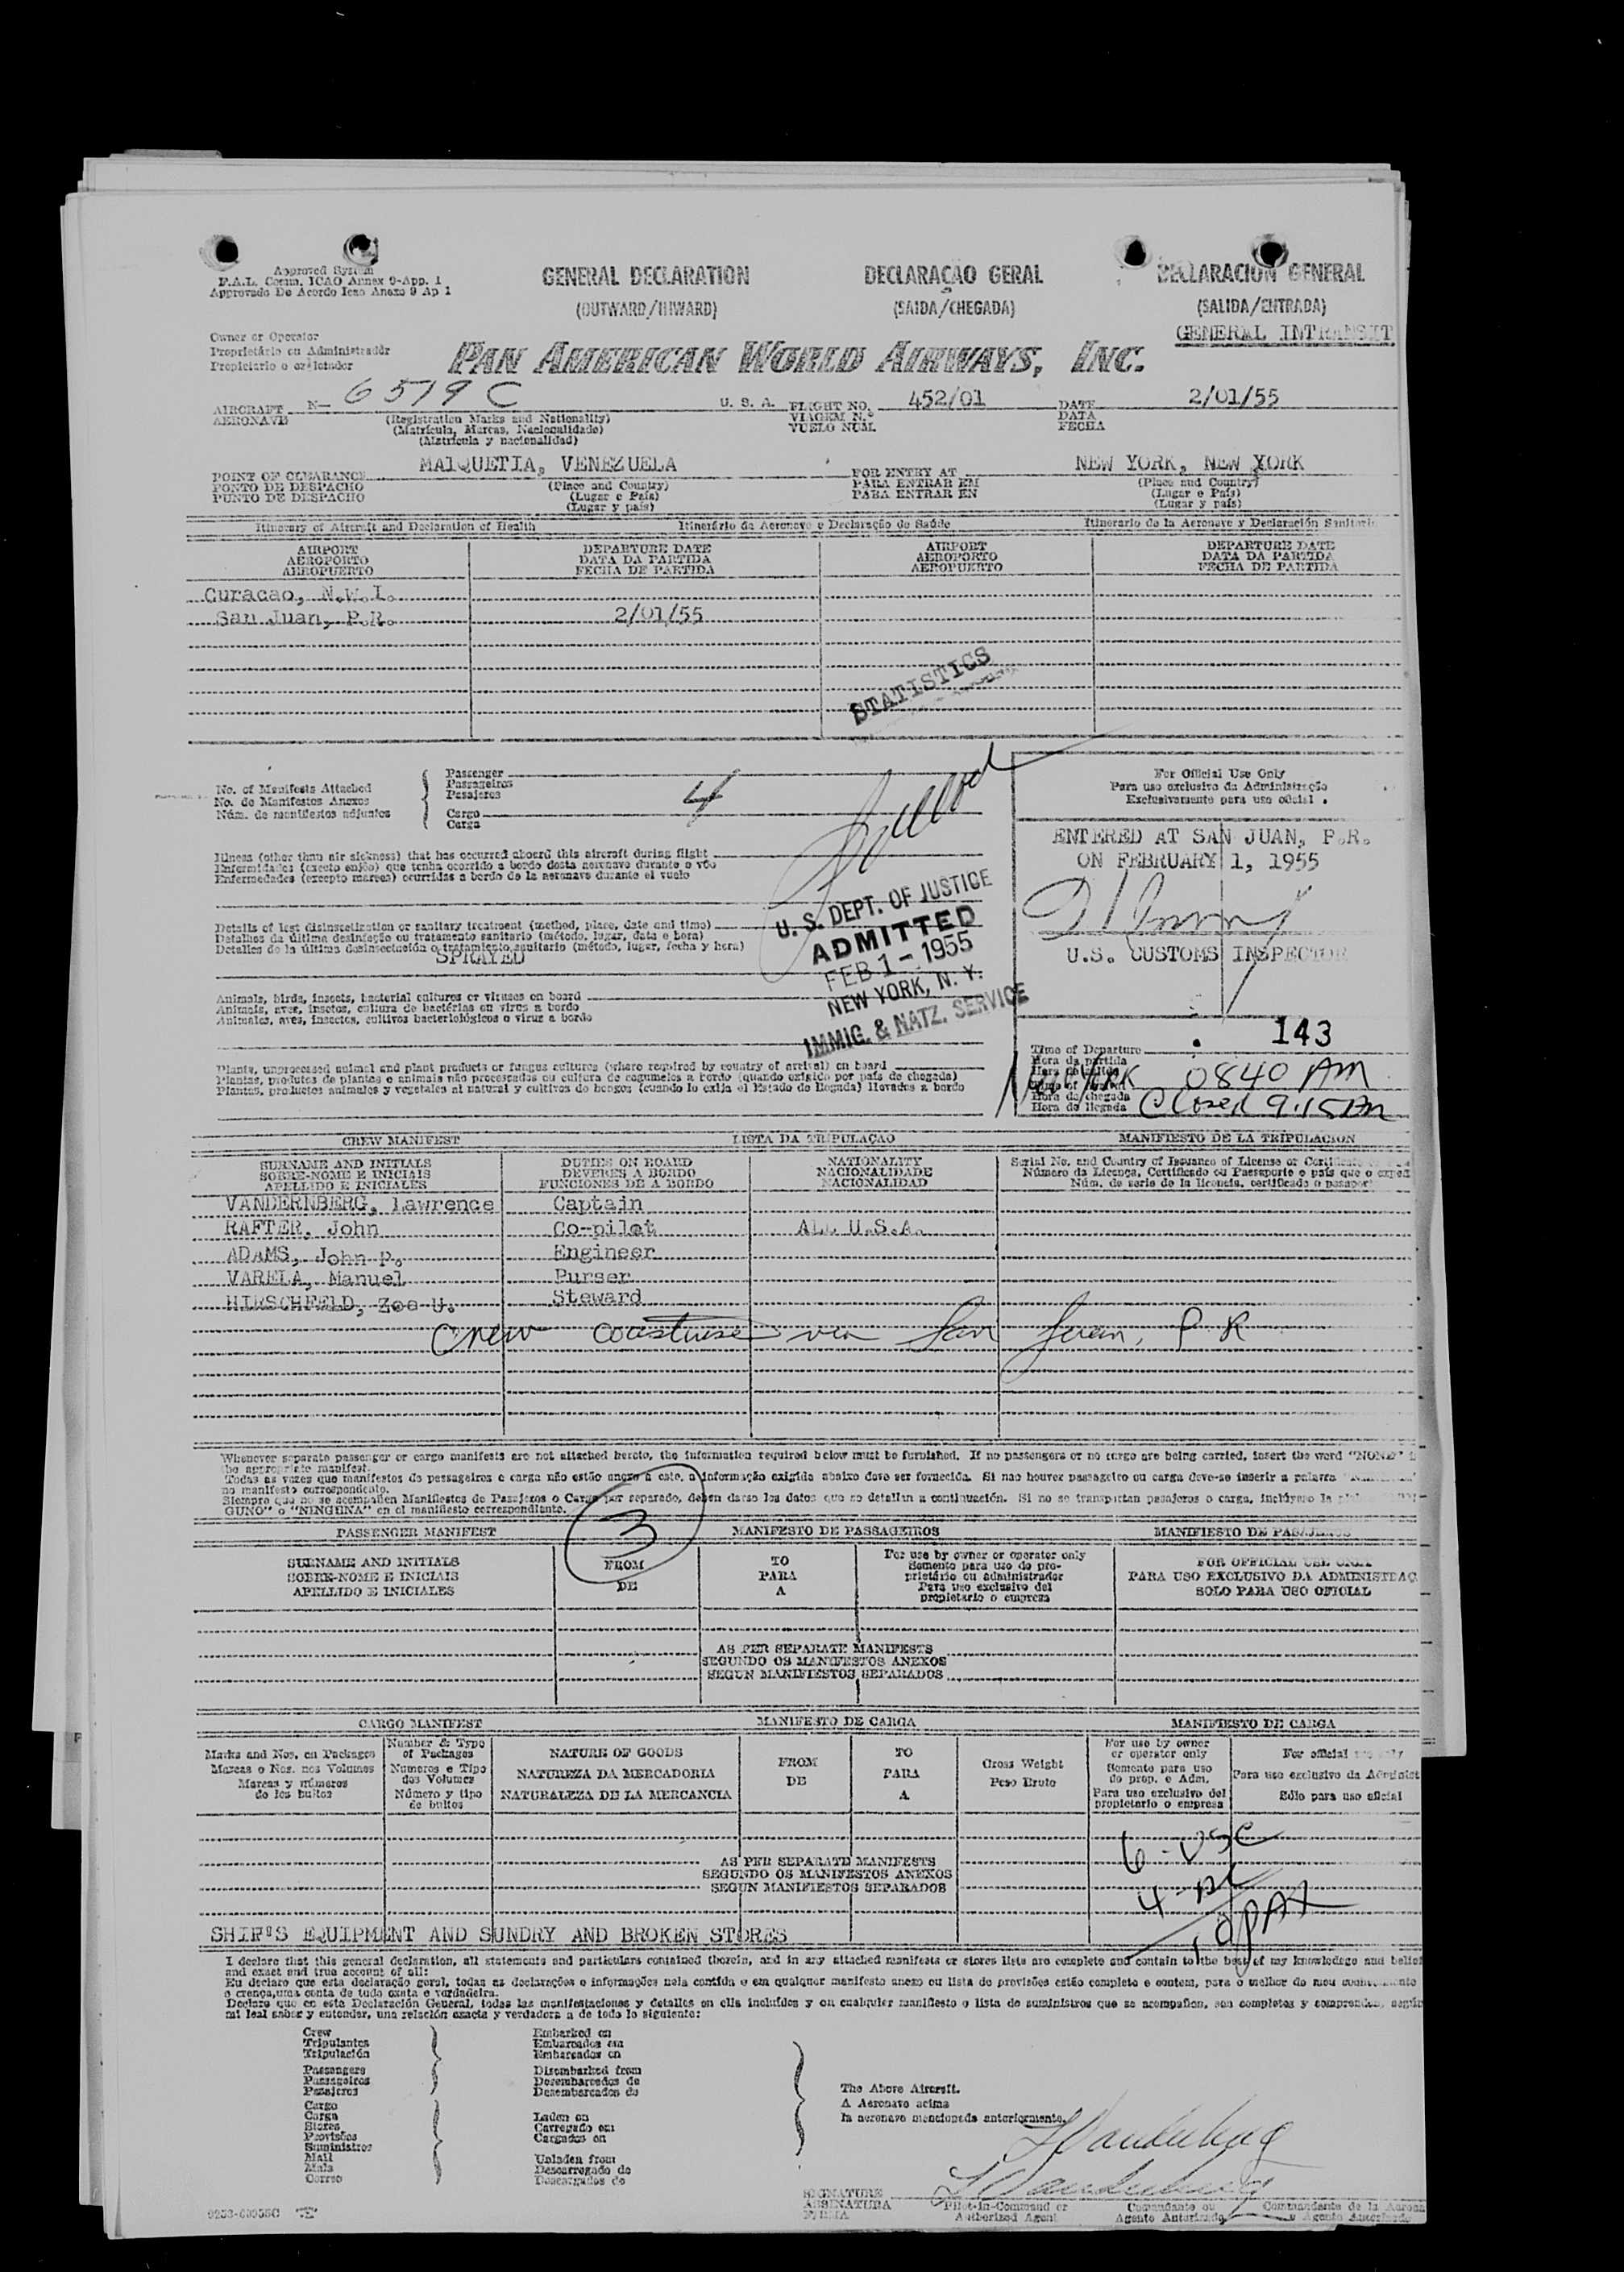 Approved System
F.A.L. Comm. ICAO Annex 9-App. 1
Approvado De Acordo Icao Anexo 9 Ap 1
GENERAL DECLARATION
(OUTWARD/INWARD)
DECLARAÇAO GERAL
(SAIDA/CHEGADA)
DECLARACION GENERAL
(SALIDA/ENTRADA)
GENERAL INTRANSIT
Owner or Operator
Proprietário ou Administrador
Propietario o explotador
PAN AMERICAN WORLD AIRWAYS, INC.
AIRCRAFT N- 6519C U. S. A. FLIGHT NO. 452/01 DATE 2/01/55
AERONAVE (Registration Marks and Nationality) VIAGEM N.º DATA
(Matrícula, Marcas, Nacionalidade) VUELO NÚM. FECHA
(Matrícula y nacionalidad)
POINT OF CLEARANCE MAIQUETIA, VENEZUELA FOR ENTRY AT NEW YORK, NEW YORK
PONTO DE DESPACHO (Place and Country) PARA ENTRAR EM (Place and Country)
PUNTO DE DESPACHO (Lugar e País) PARA ENTRAR EN (Lugar e País)
(Lugar y país) (Lugar y país)
Itinerary of Aircraft and Declaration of Health Itinerário da Aeronave e Declaração de Saúde Itinerario de la Aeronave y Declaración Sanitaria
AIRPORT DEPARTURE DATE AIRPORT DEPARTURE DATE
AEROPORTO DATA DA PARTIDA AEROPORTO DATA DA PARTIDA
AEROPUERTO FECHA DE PARTIDA AEROPUERTO FECHA DE PARTIDA
Curacao, N.W.I.
San Juan, P.R. 2/01/55
STATISTICS
No. of Manifests Attached
No. de Manifestos Anexos
Núm. de manifiestos adjuntos
Passenger
Passageiros
Pasajeros
4
Cargo
Carga
For Official Use Only
Para uso exclusivo da Administração
Exclusivamente para uso oficial
ENTERED AT SAN JUAN, P.R.
ON FEBRUARY 1, 1955
U.S. CUSTOMS INSPECTOR
Illness (other than air sickness) that has occurred aboard this aircraft during flight
Enfermidades (exceto enjôo) que tenha ocorrido a bordo desta aeronave durante o vôo
Enfermedades (excepto mareos) ocurridas a bordo de la aeronave durante el vuelo
Details of last disinsectization or sanitary treatment (method, place, date and time)
Detalhes da última desinfeção ou tratamento sanitario (método, lugar, data e hora)
Detalles de la última desinsectación o tratamiento sanitario (método, lugar, fecha y hora)
SPRAYED
U. S. DEPT. OF JUSTICE
ADMITTED
FEB 1 - 1955
NEW YORK, N. Y.
IMMIG. & NATZ. SERVICE
Animals, birds, insects, bacterial cultures or viruses on board
Animais, aves, insetos, cultura de bactérias ou virus a bordo
Animales, aves, insectos, cultivos bacteriológicos o virus a bordo
Plants, unprocessed animal and plant products or fungus cultures (where required by country of arrival) on board
Plantas, produtos de plantas e animais não processados ou cultura de cogumelos a bordo (quando exigido por país de chegada)
Plantas, productos animales y vegetales al natural y cultivos de hongos (cuando lo exija el Estado de llegada) llevados a bordo
143
Time of Departure
Hora da partida
Hora de salida
0840 AM
Hora da chegada
Hora de llegada Closed 9.15 AM
CREW MANIFEST LISTA DA TRIPULAÇAO MANIFIESTO DE LA TRIPULACION
SURNAME AND INITIALS DUTIES ON BOARD NATIONALITY Serial No. and Country of Issuance of License or
SOBRE-NOME E INICIAIS DEVERES A BORDO NACIONALIDADE Número da Licença, Certificado ou Passaporte e país que o
APELLIDO E INICIALES FUNCIONES DE A BORDO NACIONALIDAD Núm. de serie de la licencia, certificado o
VANDERNBERG, Lawrence Captain
RAFTER, John Co-pilot ALL U.S.A.
ADAMS, John P. Engineer
VARELA, Manuel Purser
HIRSCHFELD, Zoe U. Steward
Crew coastwise via San Juan, P R
Whenever separate passenger or cargo manifests are not attached hereto, the information required below must be furnished. If no passengers or no cargo are being carried, insert the word "NONE"
the appropriate manifest.
Todas as vezes que manifestos de passageiros e carga não estão anexo a este, a informação exigida abaixo deve ser fornecida. Si nao houver passageiro ou carga deve-se inserir a palavra
no manifesto correspondente.
Siempre que no se acompañen Manifiestos de Pasajeros o Carga por separado, deben darse los datos que se detallan a continuación. Si no se transportan pasajeros o carga, inclúyase la
GUNO" o "NINGUNA" en el manifiesto correspondiente.
3
PASSENGER MANIFEST MANIFESTO DE PASSAGEIROS MANIFIESTO DE PASAJEROS
SURNAME AND INITIALS FROM TO For use by owner or operator only FOR OFFICIAL USE ONLY
SOBRE-NOME E INICIAIS DE PARA Somente para uso do proprietário ou administrador PARA USO EXCLUSIVO DA ADMINISTRAÇ
APELLIDO E INICIALES A Para uso exclusivo del propietario o empresa SOLO PARA USO OFICIAL
AS PER SEPARATE MANIFESTS
SEGUNDO OS MANIFESTOS ANEXOS
SEGUN MANIFIESTOS SEPARADOS
CARGO MANIFEST MANIFESTO DE CARGA MANIFIESTO DE CARGA
Marks and Nos. on Packages Number & Type of Packages NATURE OF GOODS FROM TO Gross Weight For use by owner or operator only For official use only
Marcas e Nos. nos Volumes Numeros e Tipo dos Volumes NATUREZA DA MERCADORIA DE PARA Peso Bruto Somente para uso do prop. e Adm. Para uso exclusivo da Administ
Marcas y números de los bultos Número y tipo de bultos NATURALEZA DE LA MERCANCIA A Para uso exclusivo del propietario o empresa Sólo para uso oficial
AS PER SEPARATE MANIFESTS
SEGUNDO OS MANIFESTOS ANEXOS
SEGUN MANIFIESTOS SEPARADOS
6 - USC
4 -
10 PAX
SHIP'S EQUIPMENT AND SUNDRY AND BROKEN STORES
I declare that this general declaration, all statements and particulars contained therein, and in any attached manifests or stores lists are complete and contain to the best of my knowledge and belief
and exact and true account of all:
Eu declaro que esta declaração geral, todas as declarações e informações nela contida e em qualquer manifesto anexo ou lista de provisões estão completo e contem, para o melhor do meu
e crença, uma conta de tudo exata e verdadeira.
Declaro que en esta Declaración General, todas las manifestaciones y detalles en ella incluidos y en cualquier manifiesto o lista de suministros que se acompañen, son completos y comprenden, según
mi leal saber y entender, una relación exacta y verdadera a de todo lo siguiente:
Crew
Tripulantes
Tripulación
Passengers
Passageiros
Pasajeros
Cargo
Carga
Stores
Provisões
Suministros
Mail
Mala
Correo
Embarked on
Embarcados em
Embarcados en
Disembarked from
Desembarcados de
Desembarcados de
Laden on
Carregado em
Cargados en
Unladen from
Descarregado de
Descargados de
The Above Aircraft.
A Aeronave acima
la aeronave mencionada anteriormente.
L Vandenberg
L Vandenberg
SIGNATURE
ASSINATURA
FIRMA
Pilot-in-Command or
Authorized Agent
Comandante ou
Agente Autorizado
Commandante de la
o Agente